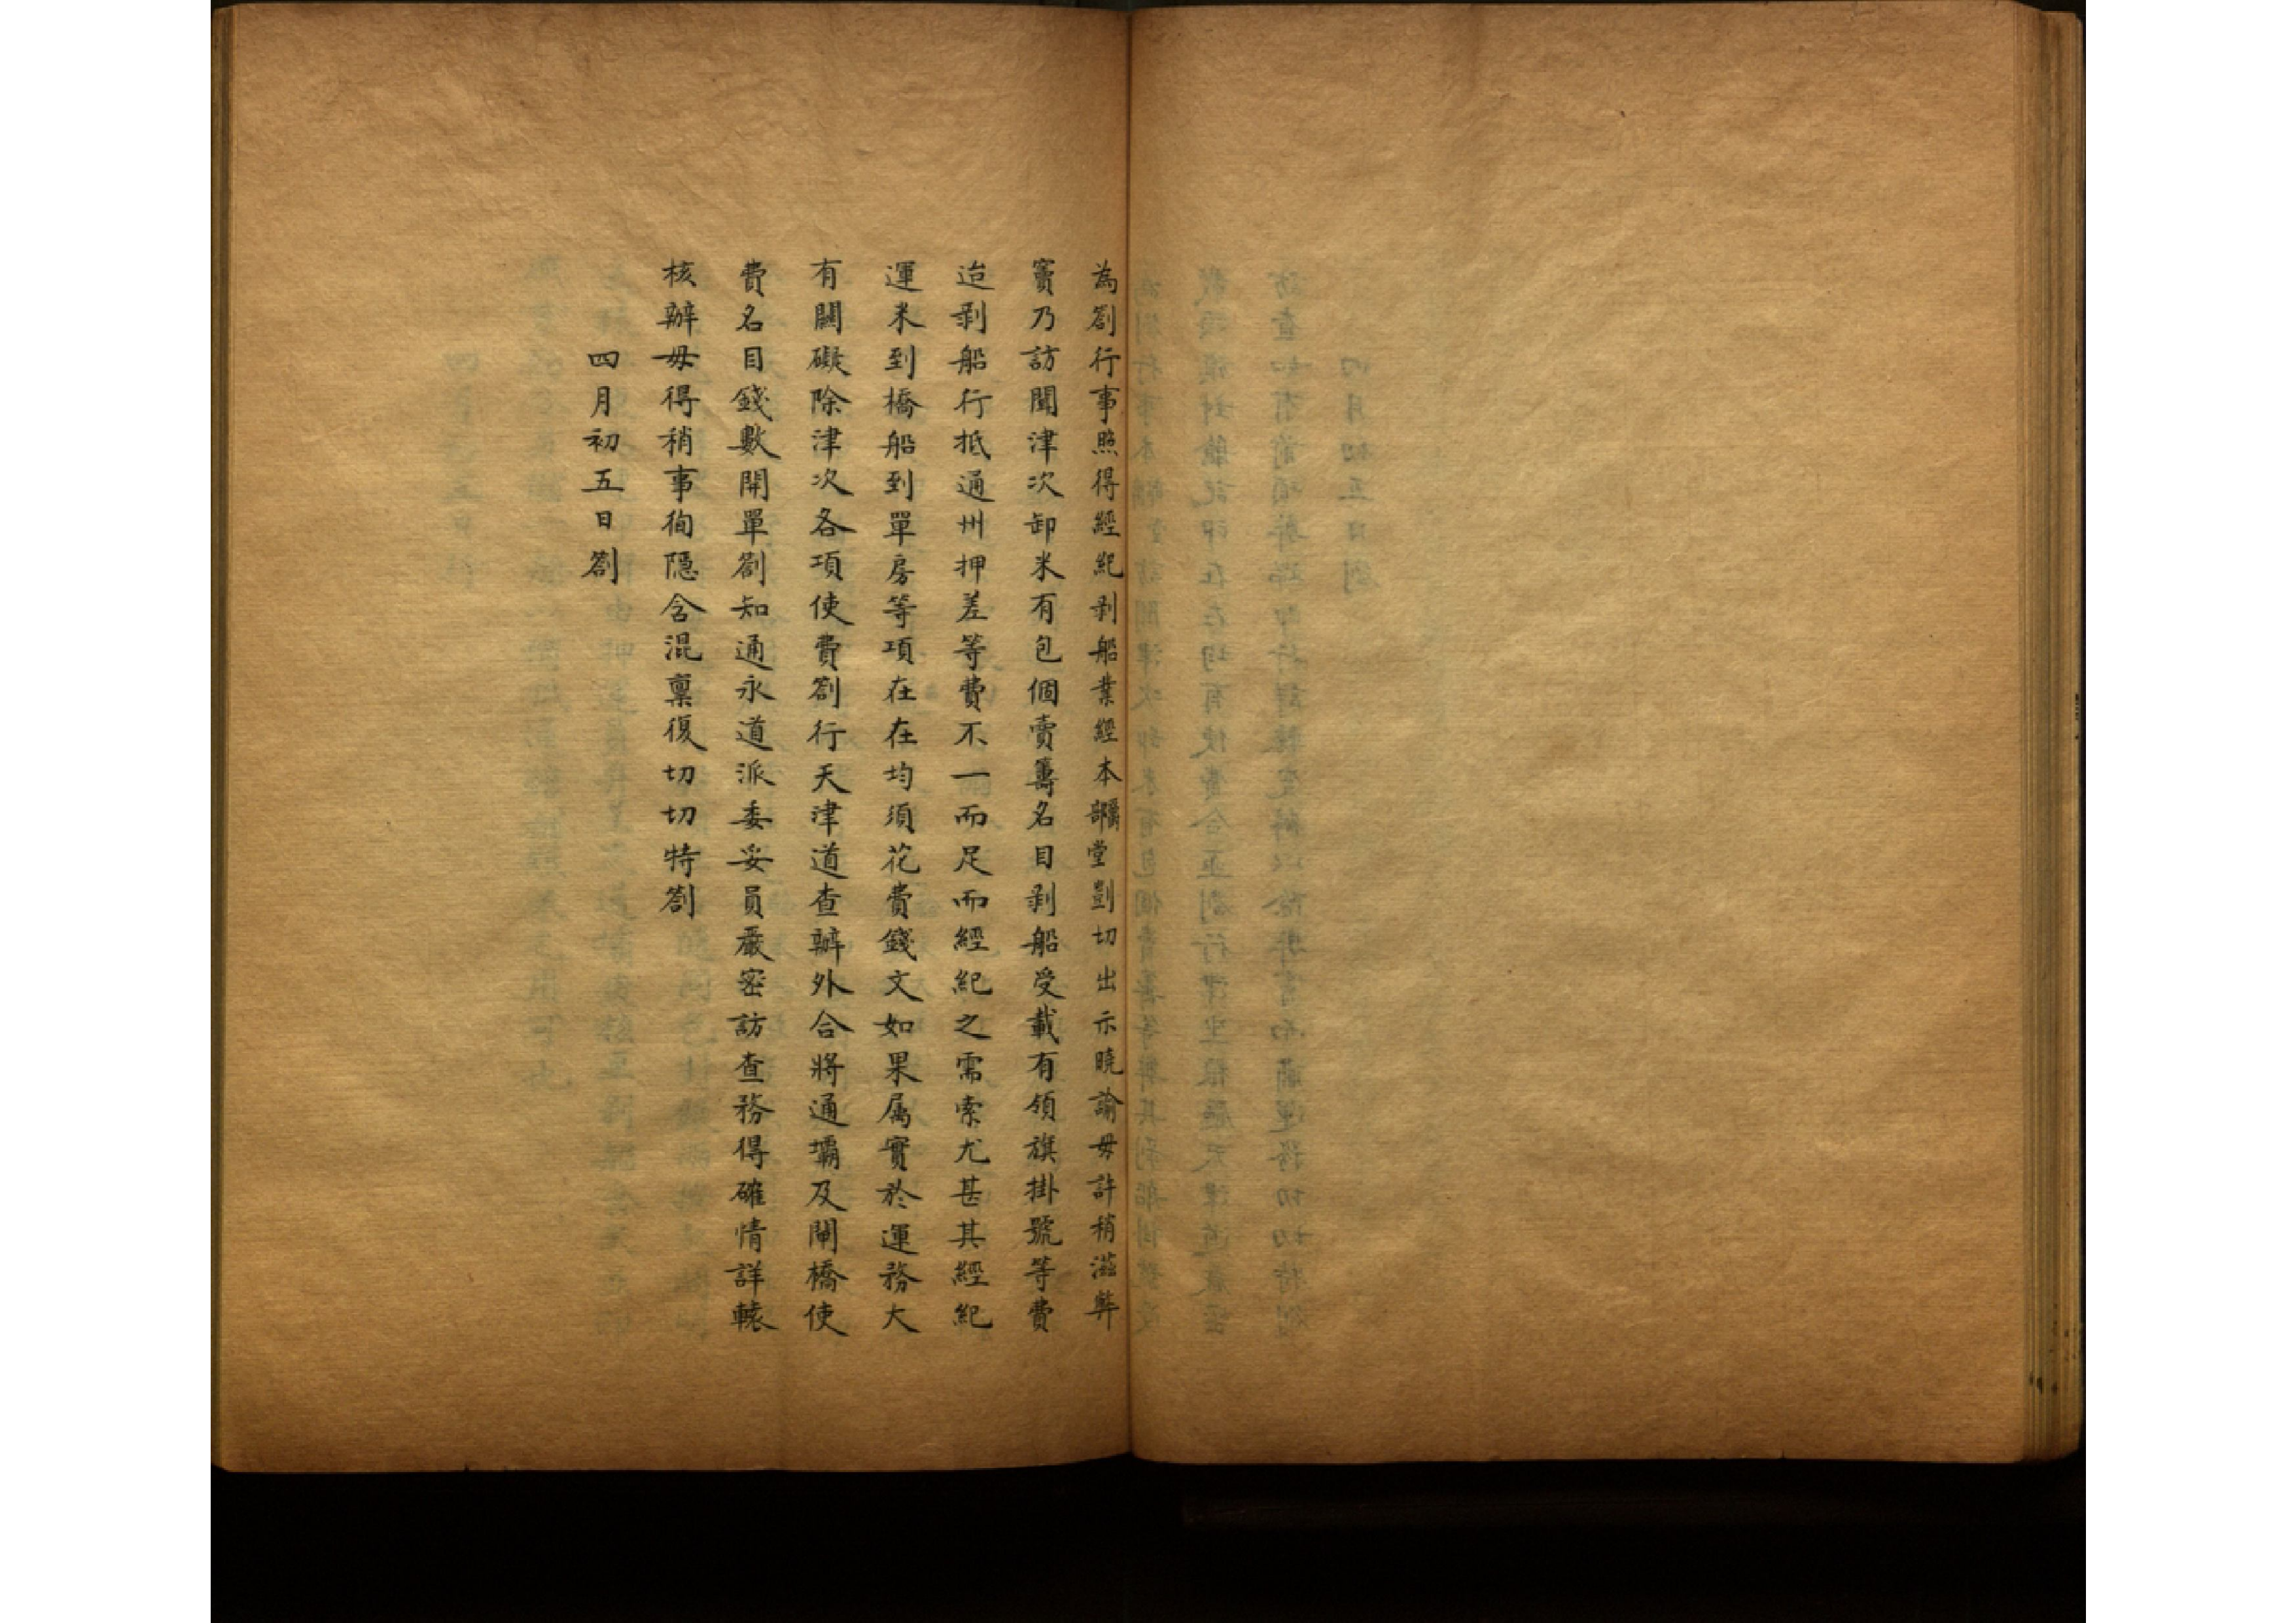 為劄行事照得經紀剥船業經本爵部堂剴切出示曉諭毋許稍滋弊
竇乃訪聞津次卸米有包個賣籌名目剥船受載有領旗掛號等費
迨剥船行抵通州押差等費不一而足而經紀之需索尤甚其經紀
運米到橋船到單房等項在在均須花費錢文如果属實於運務大
有關礙除津次各項使費劄行天津道查辦外合將通壩及閘橋使
費名目錢數開單劄知通永道派委妥員嚴密訪查務得確情詳轅
核辦毋得稍事徇隱含混稟復切切特劄
四月初五日劄